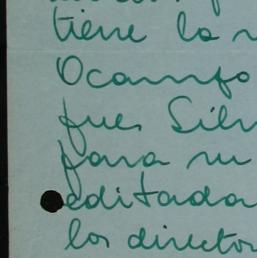 tiene la
Ocampo
pues Silv
para su
editada
los director